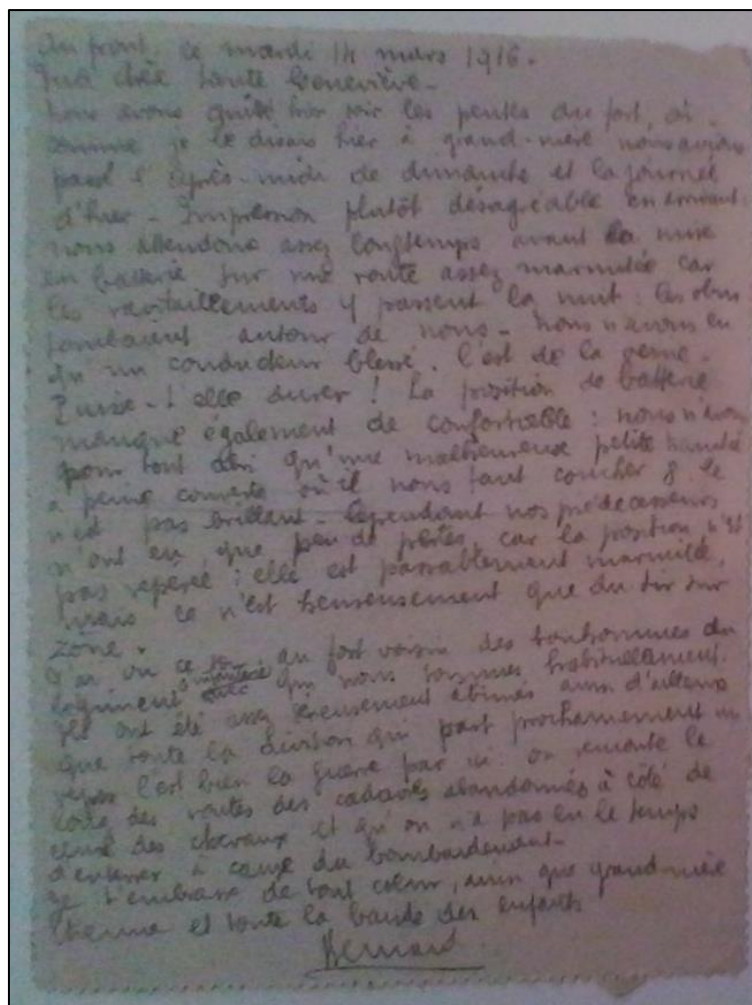 Au front, ce mardi 14 mars 1916.
Ma chère tante Geneviève -
Nous avons quitté hier soir les pentes du fort, où
comme je le disais hier à grand-mère nous avions
passé l'après-midi de dimanche et la journée
d'hier - Impression plutôt désagréable en arrivant :
nous attendons assez longtemps avant la mise
en batterie sur une route assez marmitée car
les ravitaillements y passent la nuit : les obus
tombaient autour de nous - nous n'avons eu
qu'un conducteur blessé. C'est de la veine -
Puisse-t-elle durer ! La position de batterie
manque également de confortable : nous n'avons
pour tout abri qu'une malheureuse petite tranchée
à peine couverte où il nous faut coucher 8. Ce
n'est pas brillant - Cependant nos prédécesseurs
n'ont eu que peu de pertes, car la position n'est
pas repérée : elle est passablement marmitée,
mais ce n'est heureusement que du tir sur
zone.
J'ai vu ce au fort voisin des bonhommes du
régiment d'infanterie avec qui nous sommes habituellement.
Ils ont été assez sérieusement abîmés ainsi d'ailleurs
que toute la division qui part prochainement au
repos. C'est bien la guerre par ici : on rencontre le
long des routes des cadavres abandonnés à côté de
ceux des chevaux et qu'on n'a pas eu le temps
d'enterrer à cause du bombardement -
Je t'embrasse de tout coeur, ainsi que grand-mère
Etienne et toute la bande des enfants
Bernard